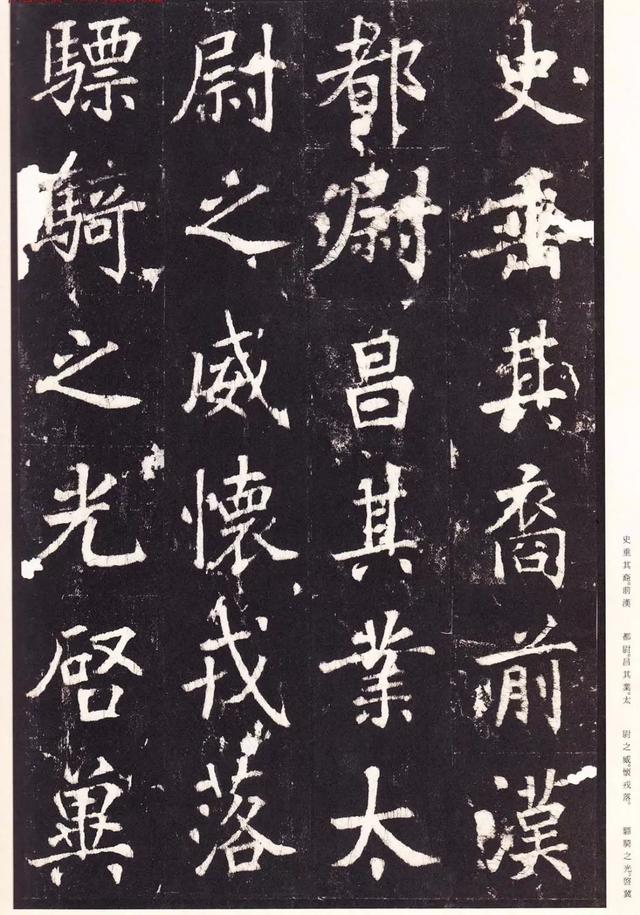 史垂其裔前漢
都尉昌其業太
尉之威懷戎落
驃騎之光啓冀
史垂其裔。前漢
都尉。昌其業。太
尉之威。懷戎落。
驃騎之光。啓冀